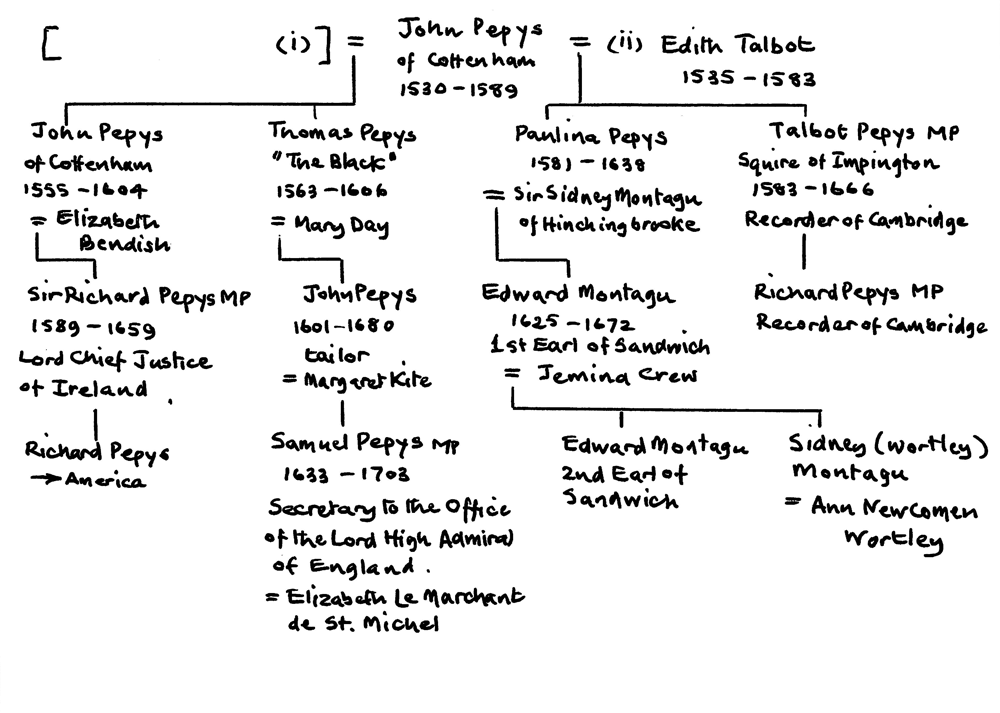 [ (i) ] = John Pepys = (ii) Edith Talbot
of Cottenham
1530 - 1589
1535 - 1583
John Pepys
of Cottenham
1555 - 1604
= Elizabeth
Bendish
Thomas Pepys
"The Black"
1563 - 1606
= Mary Day
Paulina Pepys
1581 - 1638
= Sir Sidney Montagu
of Hinchingbrooke
Talbot Pepys MP
Squire of Impington
1583 - 1666
Recorder of Cambridge
Sir Richard Pepys MP
1589 - 1659
Lord Chief Justice
of Ireland
John Pepys
1601 - 1680
tailor
= Margaret Kite
Edward Montagu
1625 - 1672
1st Earl of Sandwich
= Jemina Crew
Richard Pepys MP
Recorder of Cambridge
Richard Pepys
→ America
Samuel Pepys MP
1633 - 1703
Secretary to the Office
of the Lord High Admiral
of England.
= Elizabeth Le Marchant
de St. Michel
Edward Montagu
2nd Earl of
Sandwich
Sidney (Wortley)
Montagu
= Ann Newcomen
Wortley